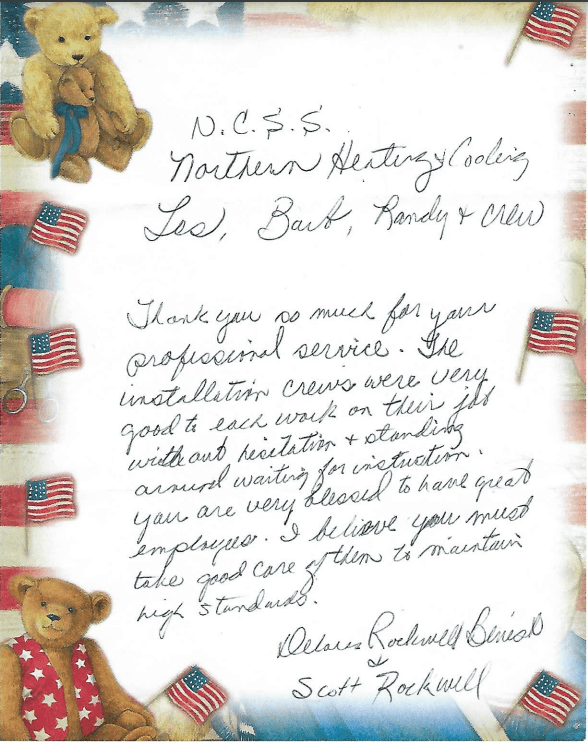 N.C.S.S.
Northern Heating & Cooling
Les, Barb, Randy & Crew
Thank you so much for your
professional service. The
installation crews were very
good to each work on their job
without hesitation & standing
around waiting for instruction.
you are very blessed to have great
employees. I believe you must
take good care of them to maintain
high standards.
Delores Rockwell Benish
&
Scott Rockwell